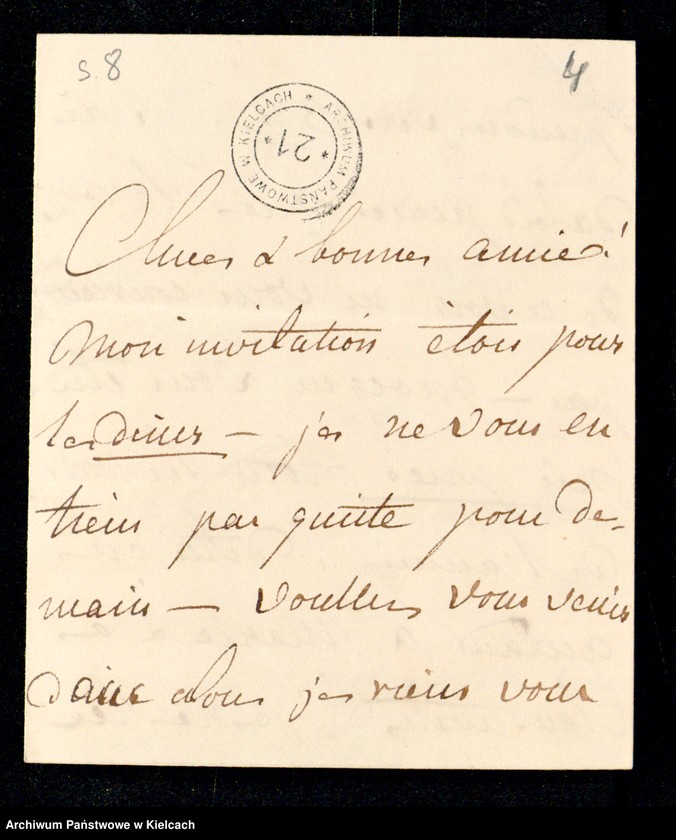 s. 8
4
ARCHIWUM PAŃSTWOWE W KIELCACH
21
Chere & bonne amie!
Mon invitation étois pour
le diner — je ne vous en
tiens par quitte pour de-
main — vouller vous venir
donc je viens vour
Archiwum Państwowe w Kielcach